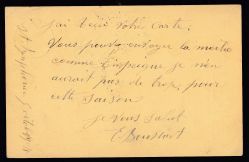 j'ai reçu votre carte.
Vous pouvez envoyer la moitié
comme j'espère je n'en
aurait pas de trop, pour
cette saison
je vous salut